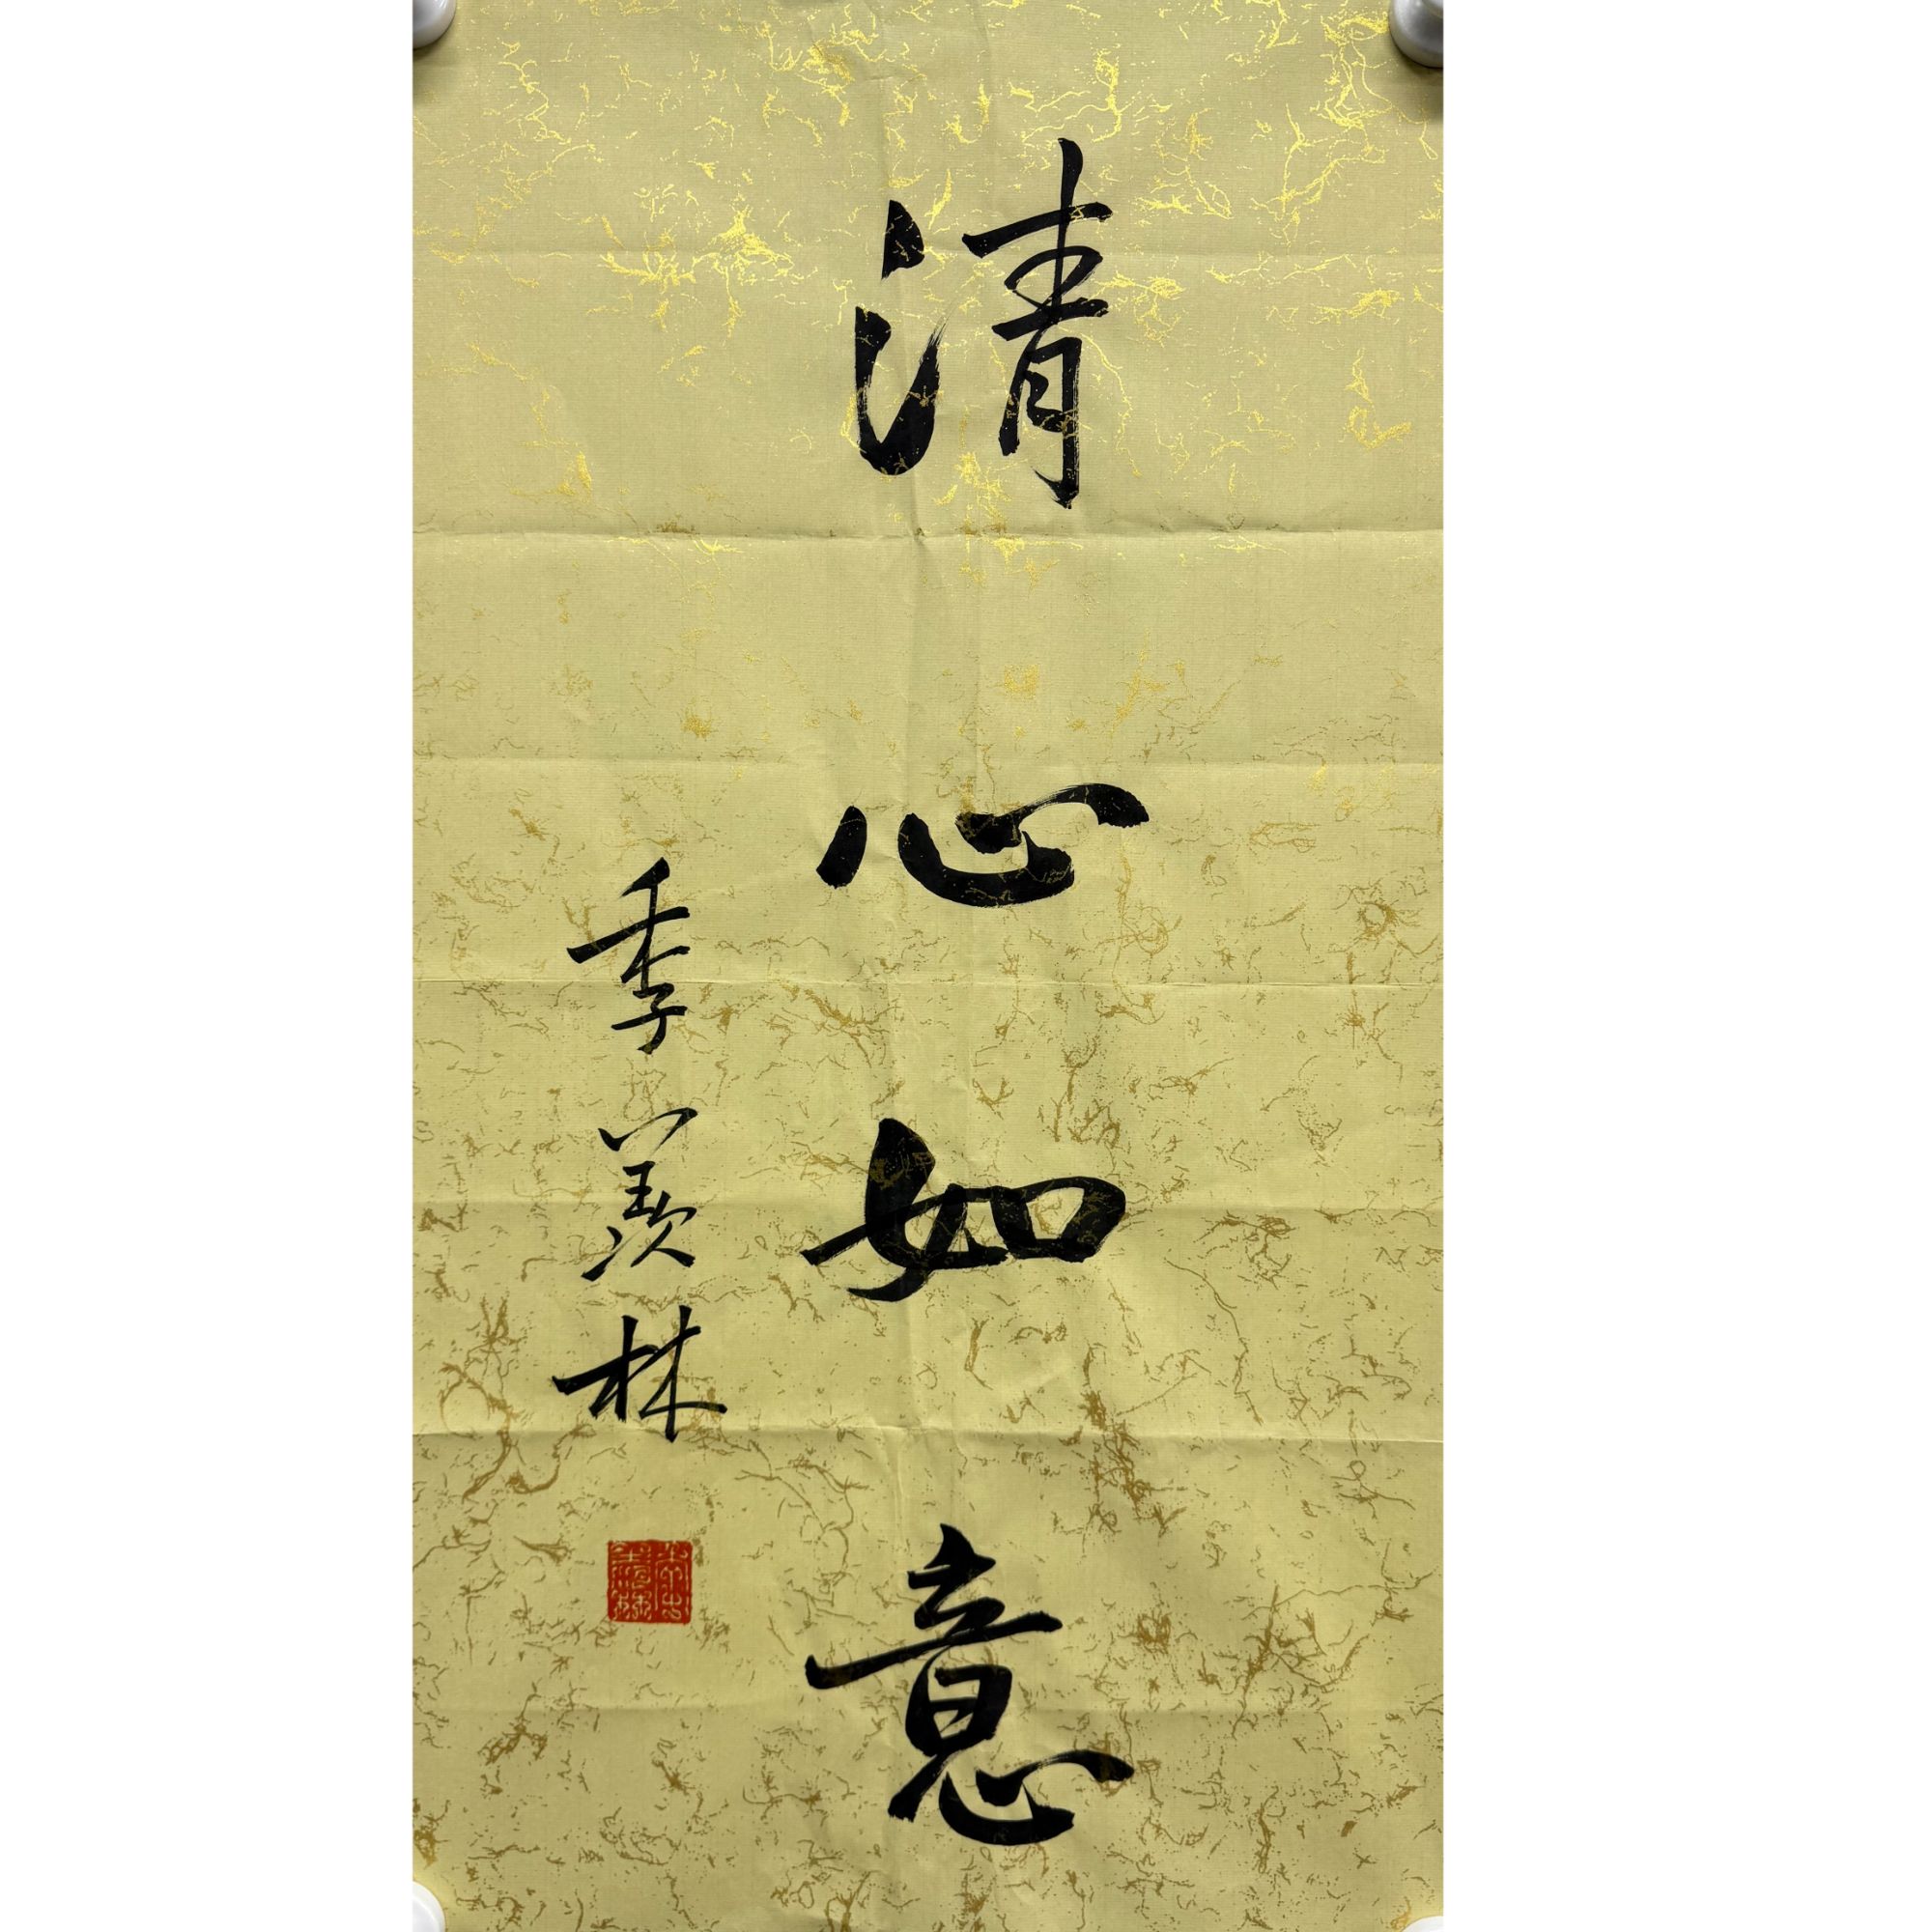 清心如意
季羡林